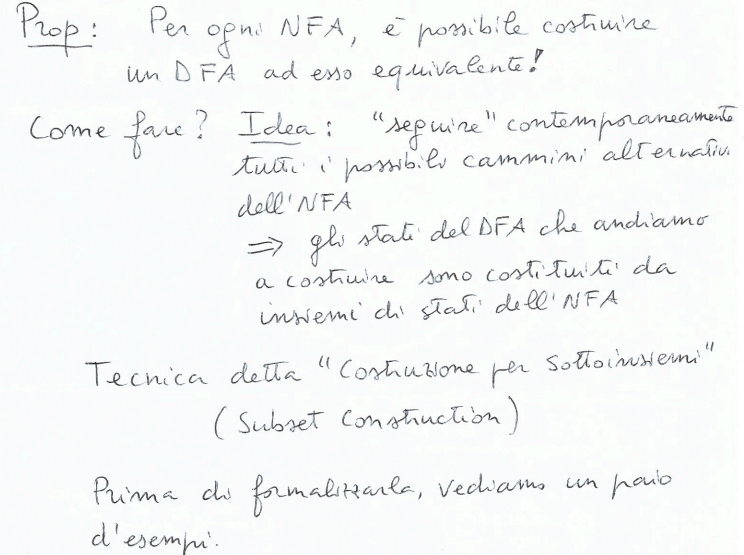 Prop: Per ogni NFA, è possibile costruire
un DFA ad esso equivalente!
Come fare? Idea: "seguire" contemporaneamente
tutti i possibili cammini alternativi
dell'NFA
⇒ gli stati del DFA che andiamo
a costruire sono costituiti da
insiemi di stati dell'NFA
Tecnica detta "Costruzione per sottoinsiemi"
(Subset Construction)
Prima di formalizzarla, vediamo un paio
d'esempi.